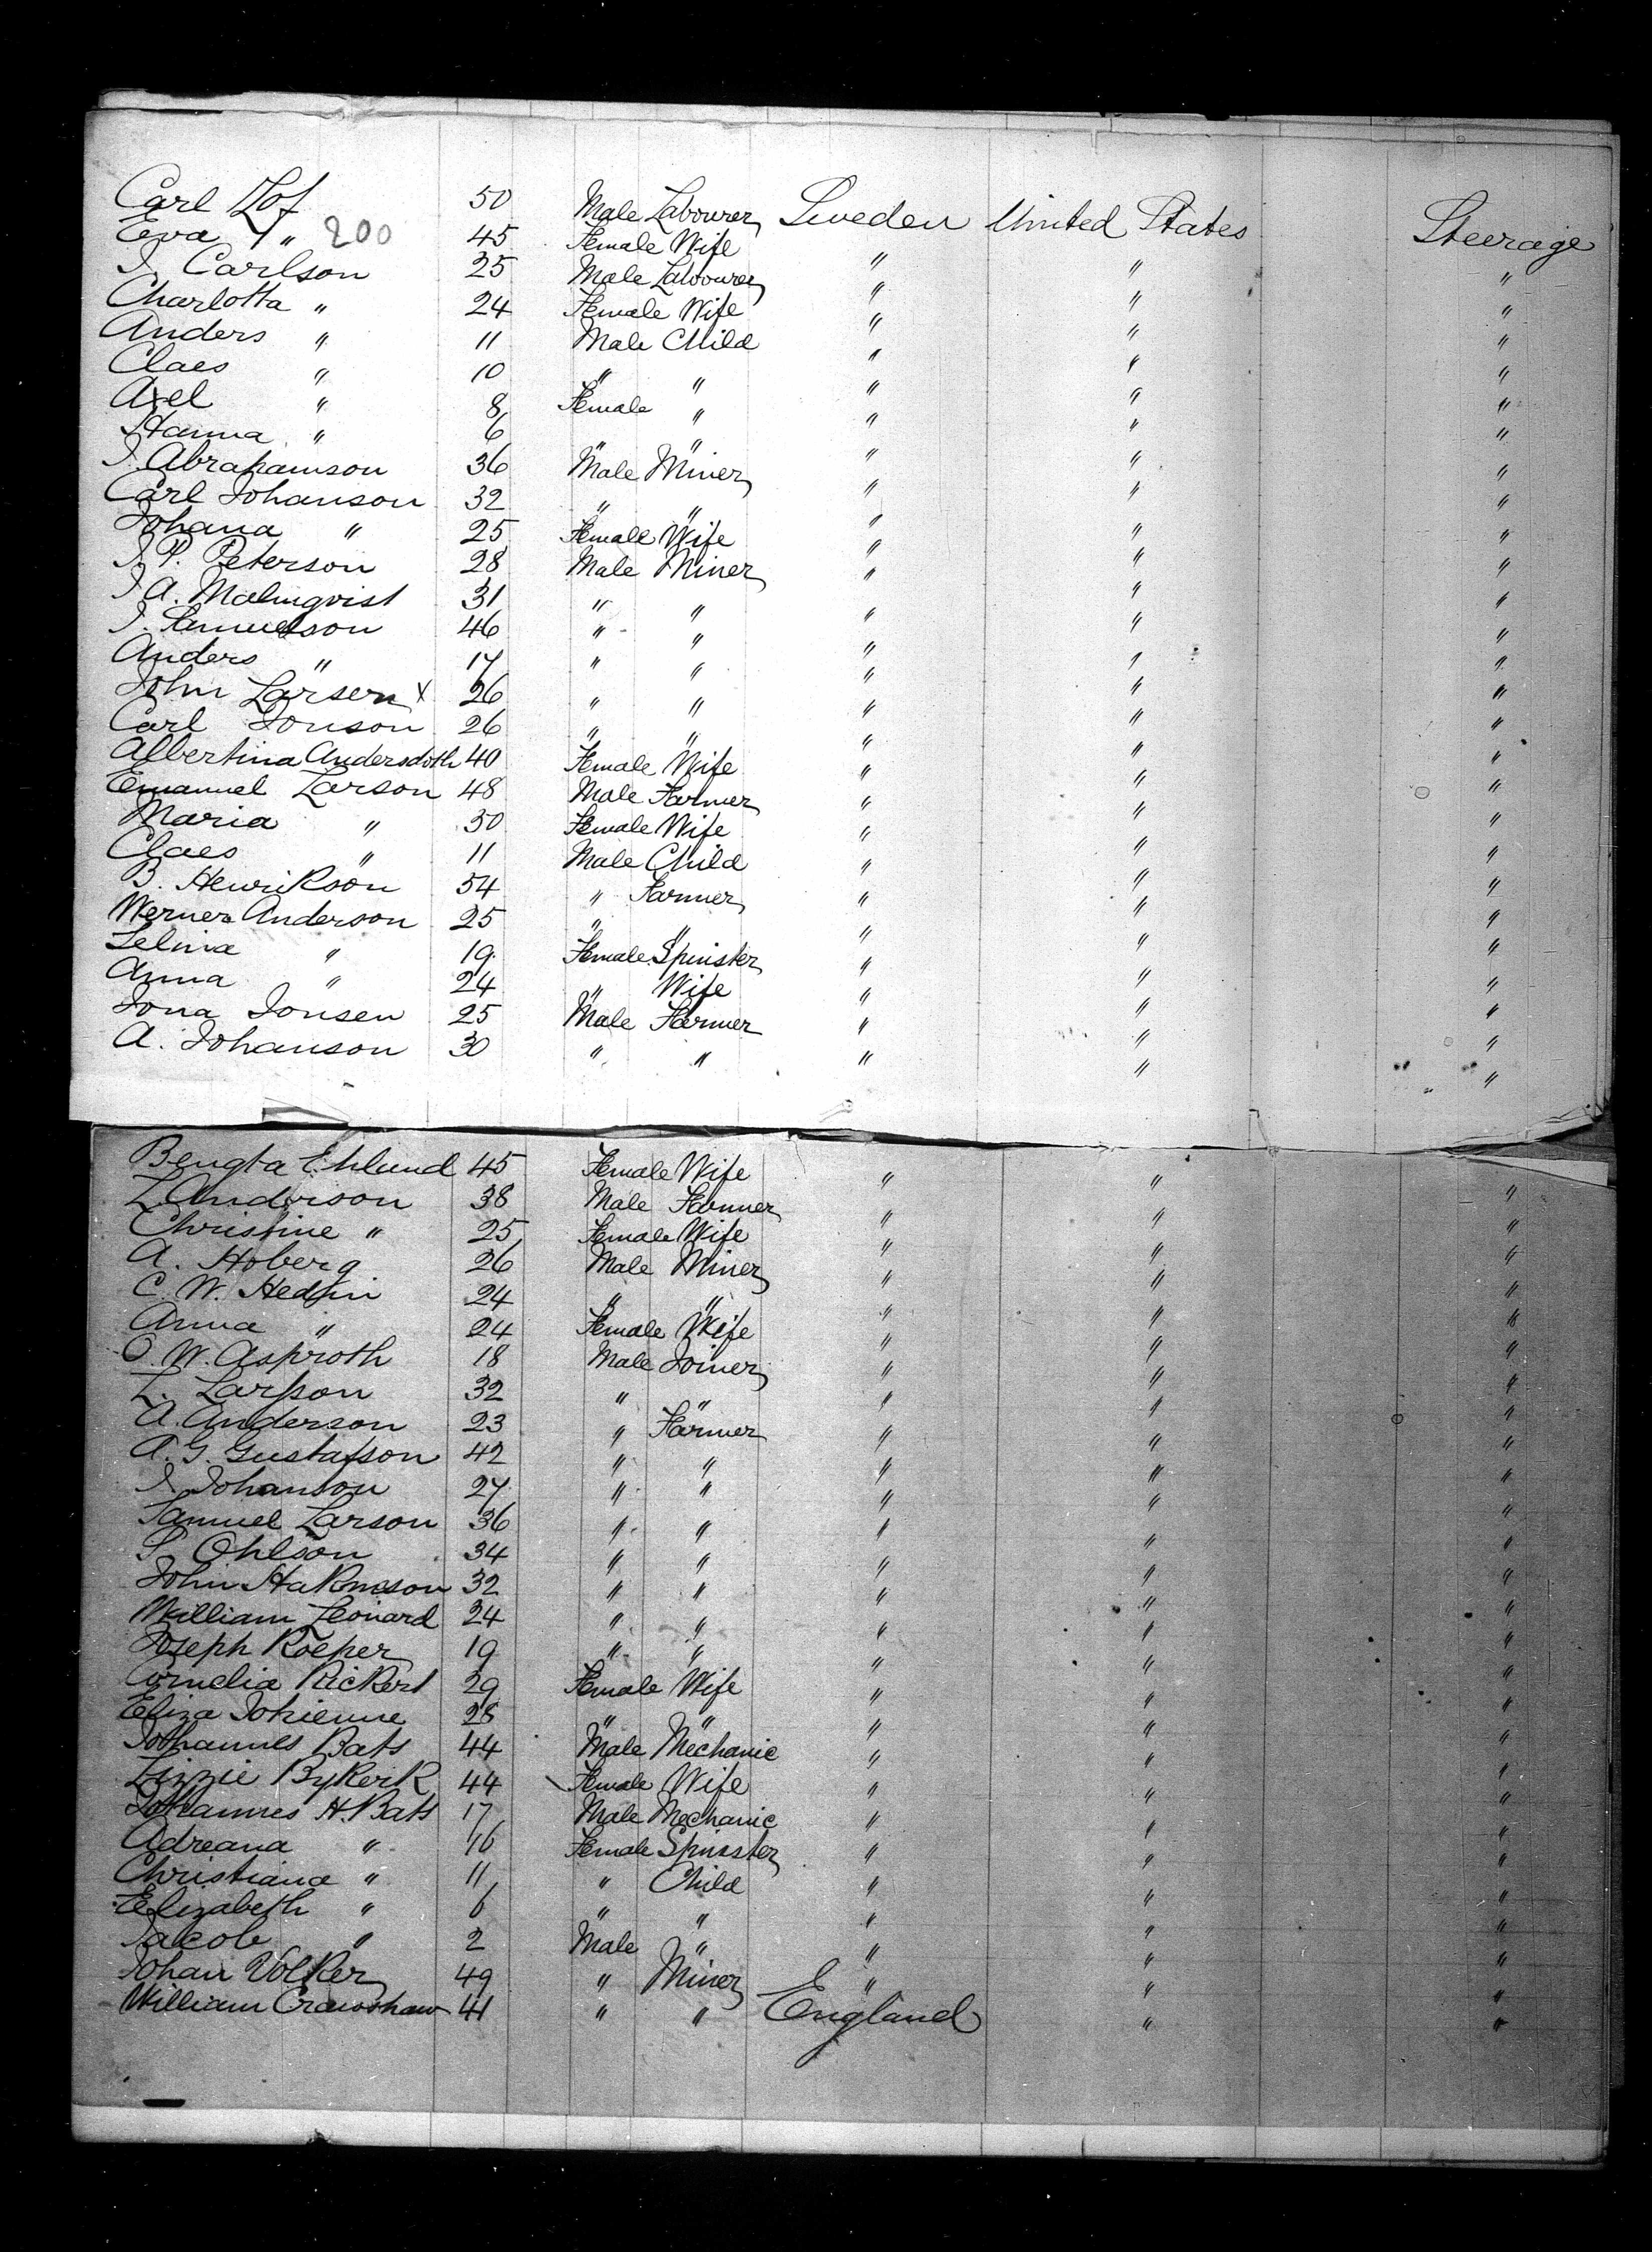 Carl Lof 50 Male Labourer Sweden United States Steerage
Eva " 200 45 Female Wife " " "
J. Carlson 25 Male Labourer " " "
Charlotta " 24 Female Wife " " "
Anders " 11 Male Child " " "
Claes " 10 " " " " "
Axel " 8 Female " " " "
Hanna " 6 " " " " "
J. Abrahamson 36 Male Miner " " "
Carl Johanson 32 " " " " "
Johana " 25 Female Wife " " "
J. P. Peterson 28 Male Miner " " "
J A. Malmqvist 31 " " " " "
J. Samuelson 46 " " " " "
Anders " 17 " " " " "
John Larsen x 26 " " " " "
Carl Jonson 26 " " " " "
Albertina Andersdoth 40 Female Wife " " "
Emanuel Larson 48 Male Farmer " " "
Maria " 30 Female Wife " " "
Claes " 11 Male Child " " "
B. Henrikson 54 " Farmer " " "
Werner Anderson 25 " " " " "
Selina " 19 Female Spinster " " "
Anna " 24 " Wife " " "
Jona Jonsen 25 Male Farmer " " "
A. Johanson 30 " " " " "
Bengta Ehlund 45 Female Wife " " "
L. Anderson 38 Male Farmer " " "
Christine " 25 Female Wife " " "
A. Hoberg 26 Male Miner " " "
C. W. Hedlin 24 " " " " "
Anna " 24 Female Wife " " "
O. W. Asproth 18 Male Joiner " " "
L. Larsson 32 " " " " "
A. Anderson 23 " Farmer " " "
A. G. Gustafson 42 " " " " "
J. Johanson 27 " " " " "
Samuel Larson 36 " " " " "
S. Ohlson 34 " " " " "
John Hakmeson 32 " " " " "
William Leonard 24 " " " " "
Joseph Roeper 19 " " " " "
Cornelia Rickert 29 Female Wife " " "
Eliza Johienne 28 " " " " "
Johannes Bats 44 Male Mechanic " " "
Lizzie Bykerk 44 Female Wife " " "
Johannes H. Bats 17 Male Mechanic " " "
Adreana " 16 Female Spinster " " "
Christiana " 11 " Child " " "
Elizabeth " 6 " " " " "
Jacob " 2 Male " " " "
Johan Volker 49 " Miner " " "
William Crawshaw 41 " " England " "